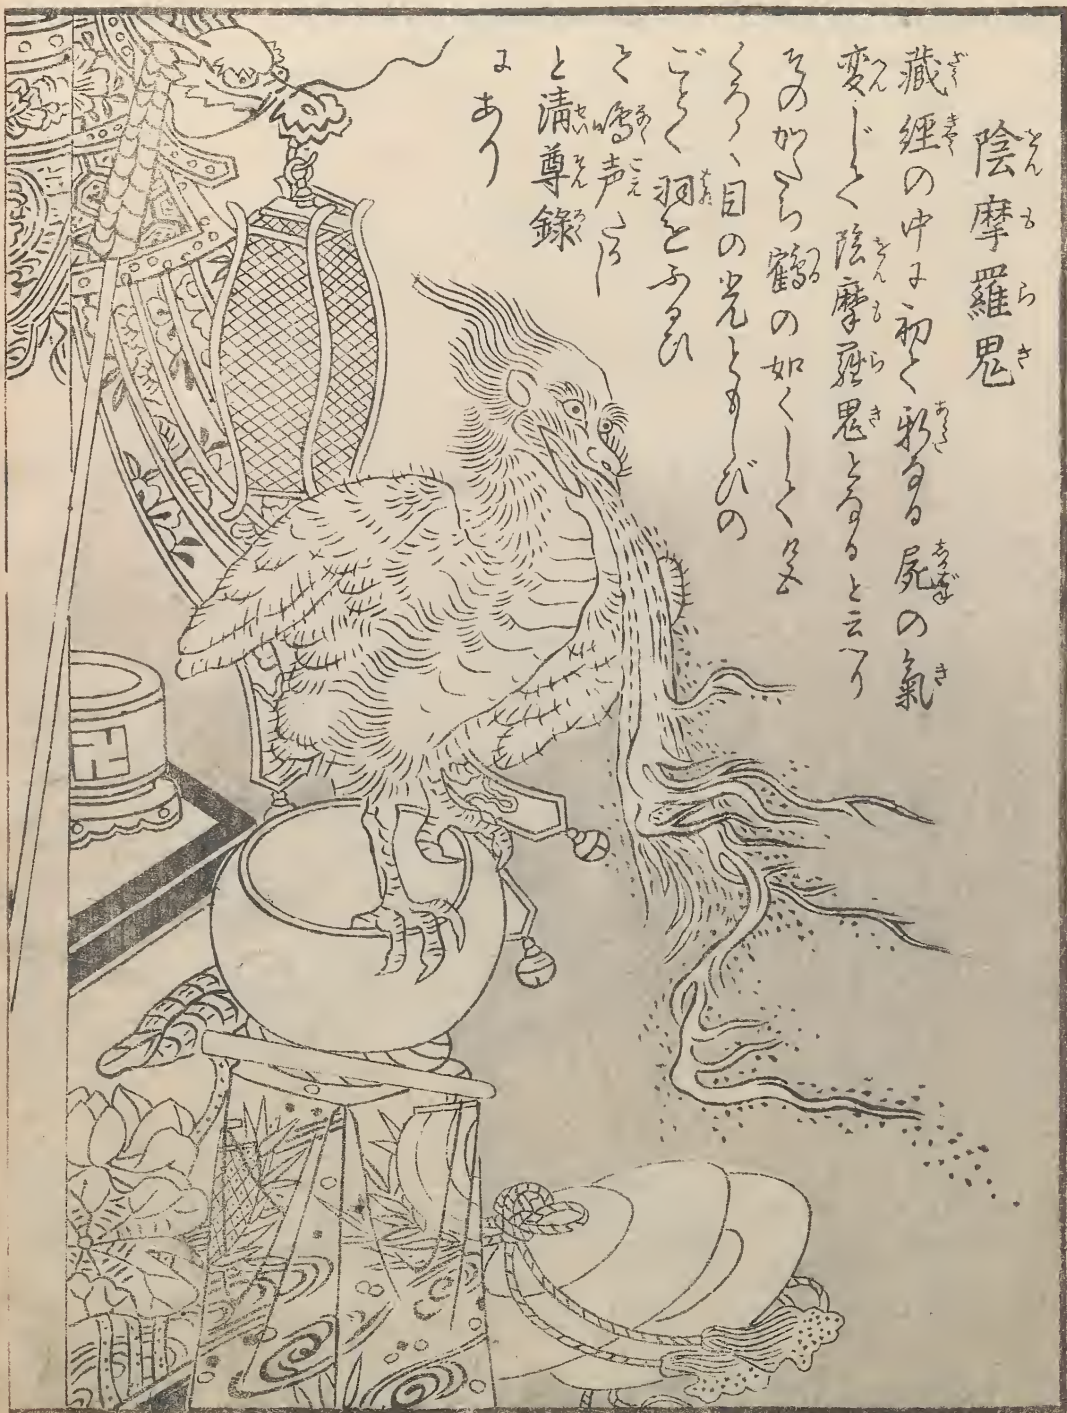 陰摩羅鬼
蔵經の中に初て新なる屍の氣
変じて陰摩羅鬼となると云へり
そのかたち鶴の如くして色
くろく目の光ともしびの
ごとく羽をふるひ
て鳴声たかし
と清尊錄
にあり